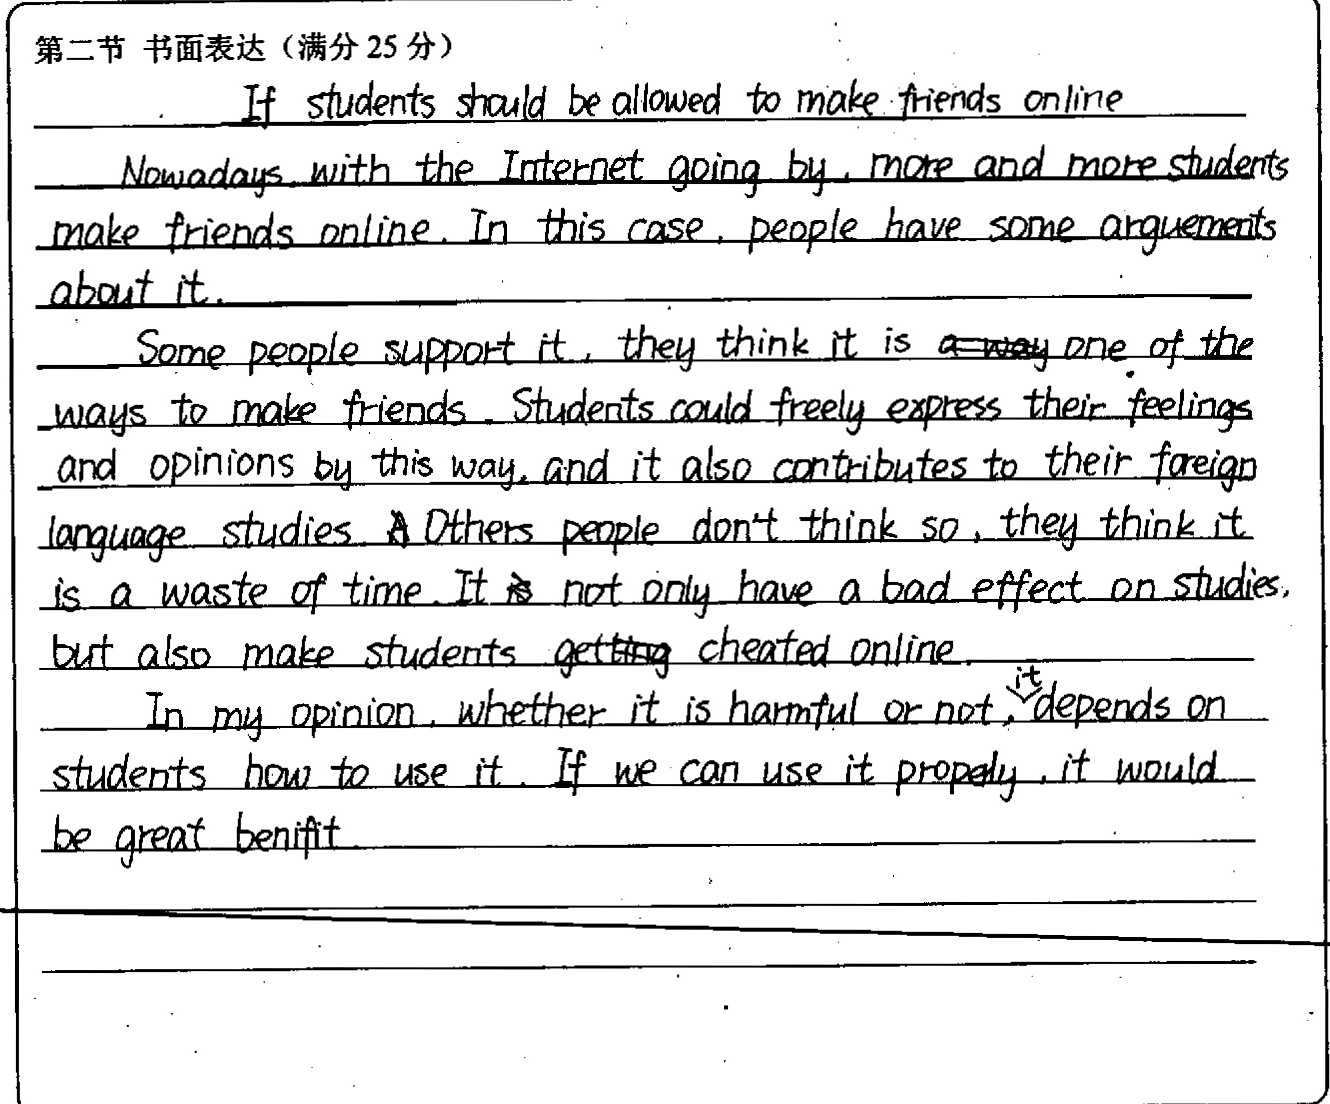 第二节 书面表达（满分 25 分）
If students should be allowed to make friends online
Nowadays, with the Internet going by, more and more students
make friends online. In this case, people have some arguements
about it.
Some people support it, they think it is one of the
ways to make friends. Students could freely express their feelings
and opinions by this way, and it also contributes to their foreign
language studies. Others people don't think so, they think it
is a waste of time. It not only have a bad effect on studies,
but also make students cheated online.
In my opinion, whether it is harmful or not, it depends on
students how to use it. If we can use it propely, it would
be great benifit.